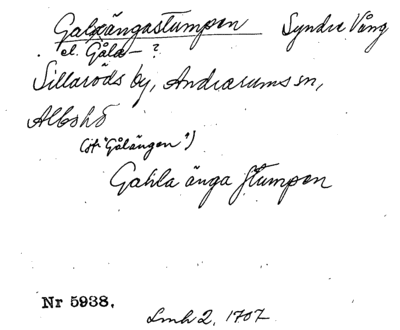 Galxängastumpen Syndre Vång
el. Gåla- ?
Sillaröds by, Andrarums sn,
Albo hd
(jfr "Gålängen")
Gahla änga Stumpen
Nr 5938,
Lmh 2, 1707.